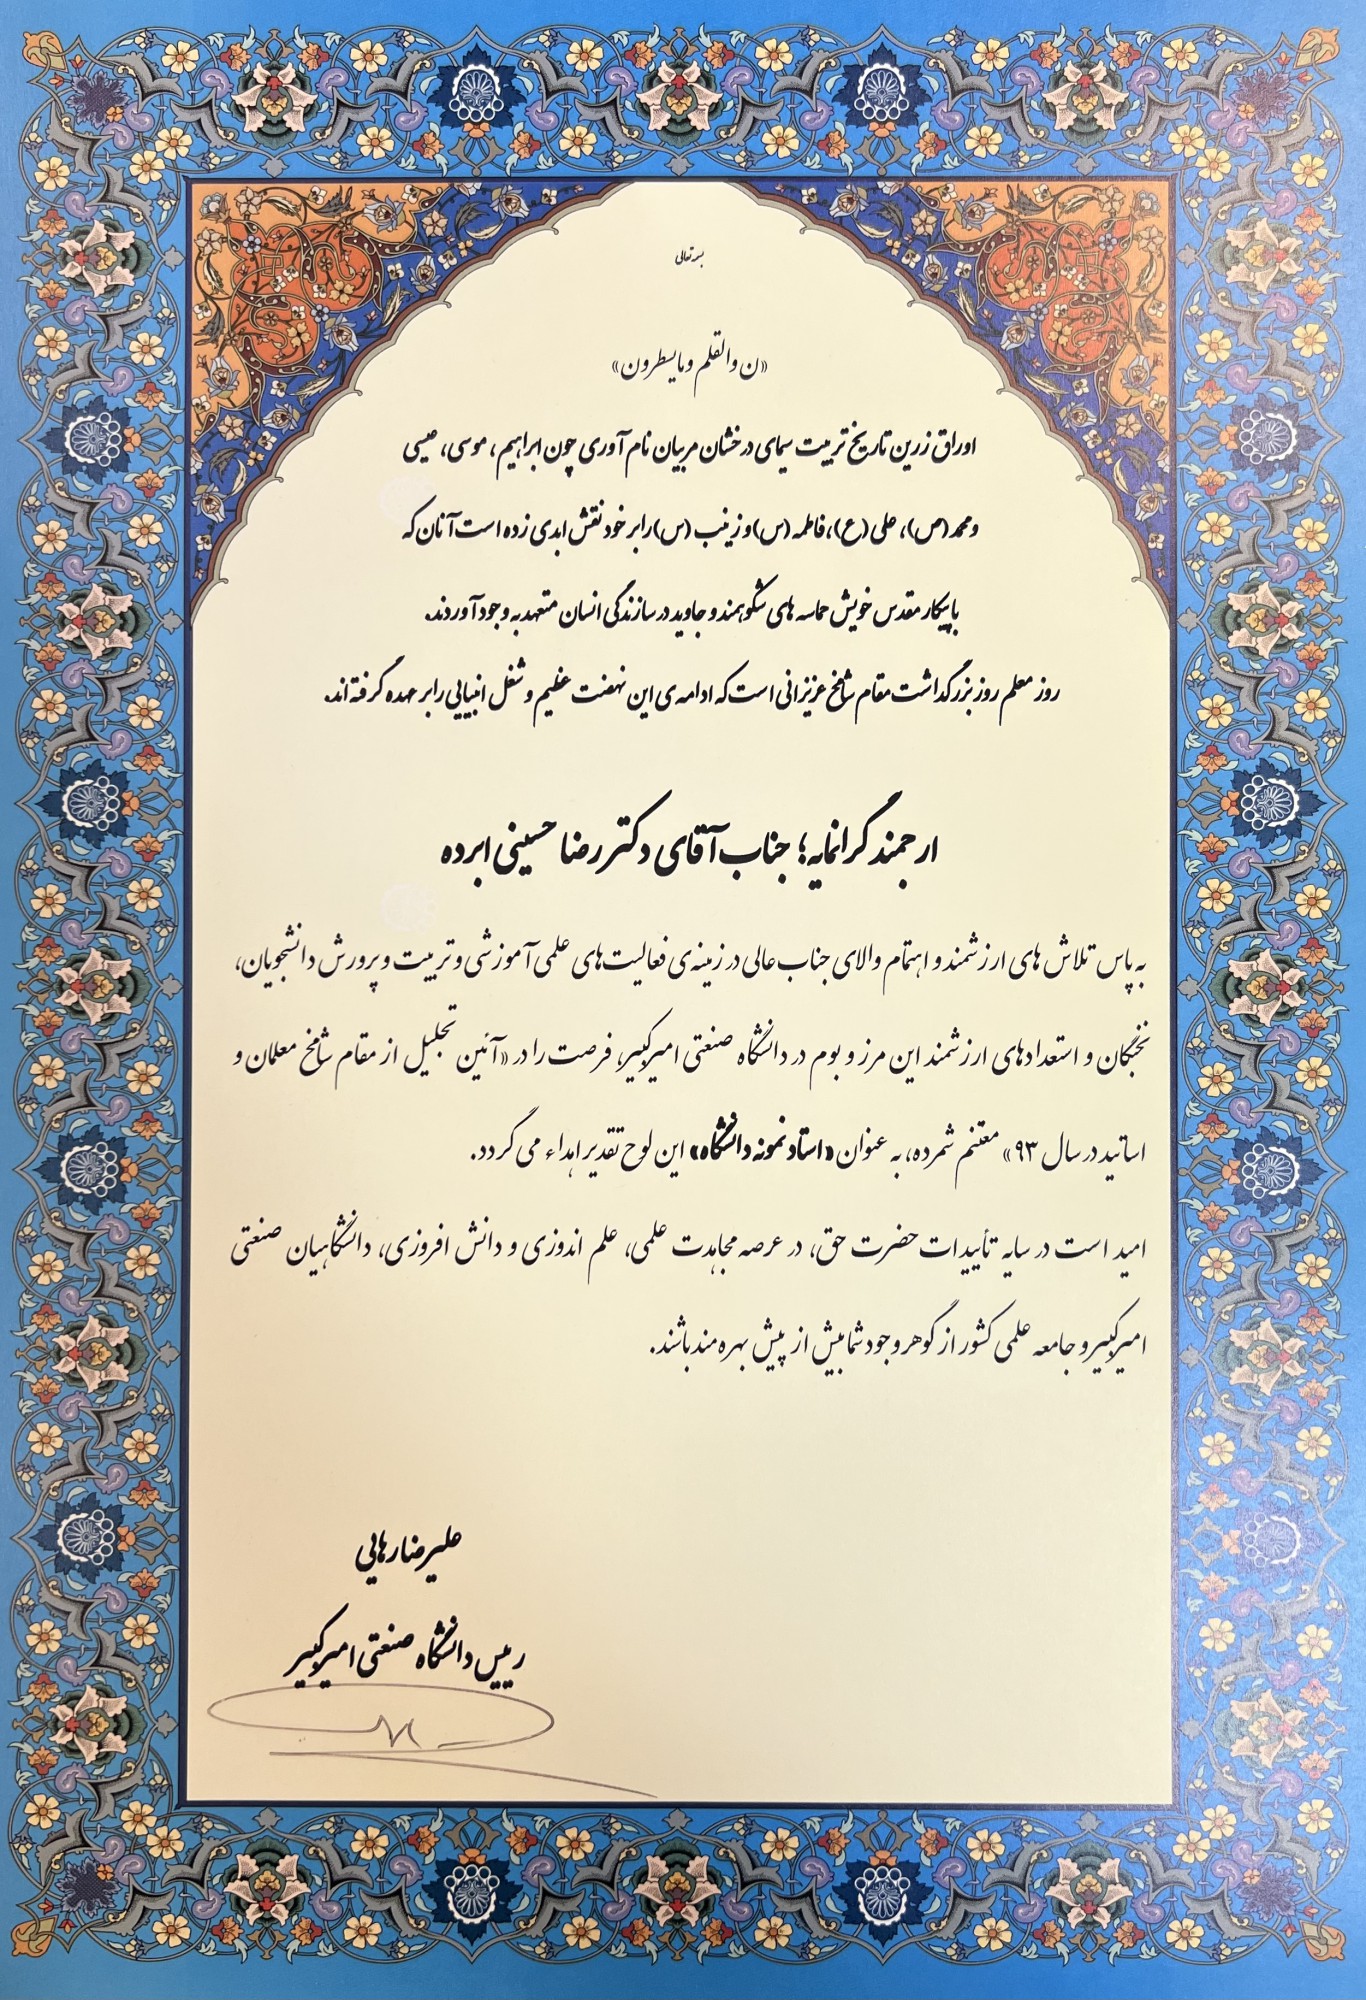 بسمه تعالی
«ن والقلم و مایسطرون»
اوراق زرین تاریخ تربیت سیمای درخشان مربیان نام آوری چون ابراهیم، موسی، عیسی
و محمد (ص)، علی (ع)، فاطمه (س) و زینب (س) را بر خود نقش ابدی زده است آنان که
با پیکار مقدس خویش حماسه های شکوهمند و جاوید در سازندگی انسان متعهد به وجود آوردند.
روز معلم روز بزرگداشت مقام شامخ عزیزانی است که ادامه ی این نهضت عظیم و شغل انبیایی را بر عهده گرفته اند.
ارجمند گرانمایه؛ جناب آقای دکتر رضا حسینی ابرده
به پاس تلاش های ارزشمند و اهتمام والای جناب عالی در زمینه ی فعالیت های علمی آموزشی و تربیت و پرورش دانشجویان،
نخبگان و استعدادهای ارزشمند این مرز و بوم در دانشگاه صنعتی امیرکبیر، فرصت را در «آئین تجلیل از مقام شامخ معلمان و
اساتید در سال ۹۳» مغتنم شمرده، به عنوان «استاد نمونه دانشگاه» این لوح تقدیر اهداء می گردد.
امید است در سایه تأییدات حضرت حق، در عرصه مجاهدت علمی، علم اندوزی و دانش افروزی، دانشگاهیان صنعتی
امیرکبیر و جامعه علمی کشور از گوهر وجود شما بیش از پیش بهره مند باشند.
علیرضا رهایی
رییس دانشگاه صنعتی امیرکبیر